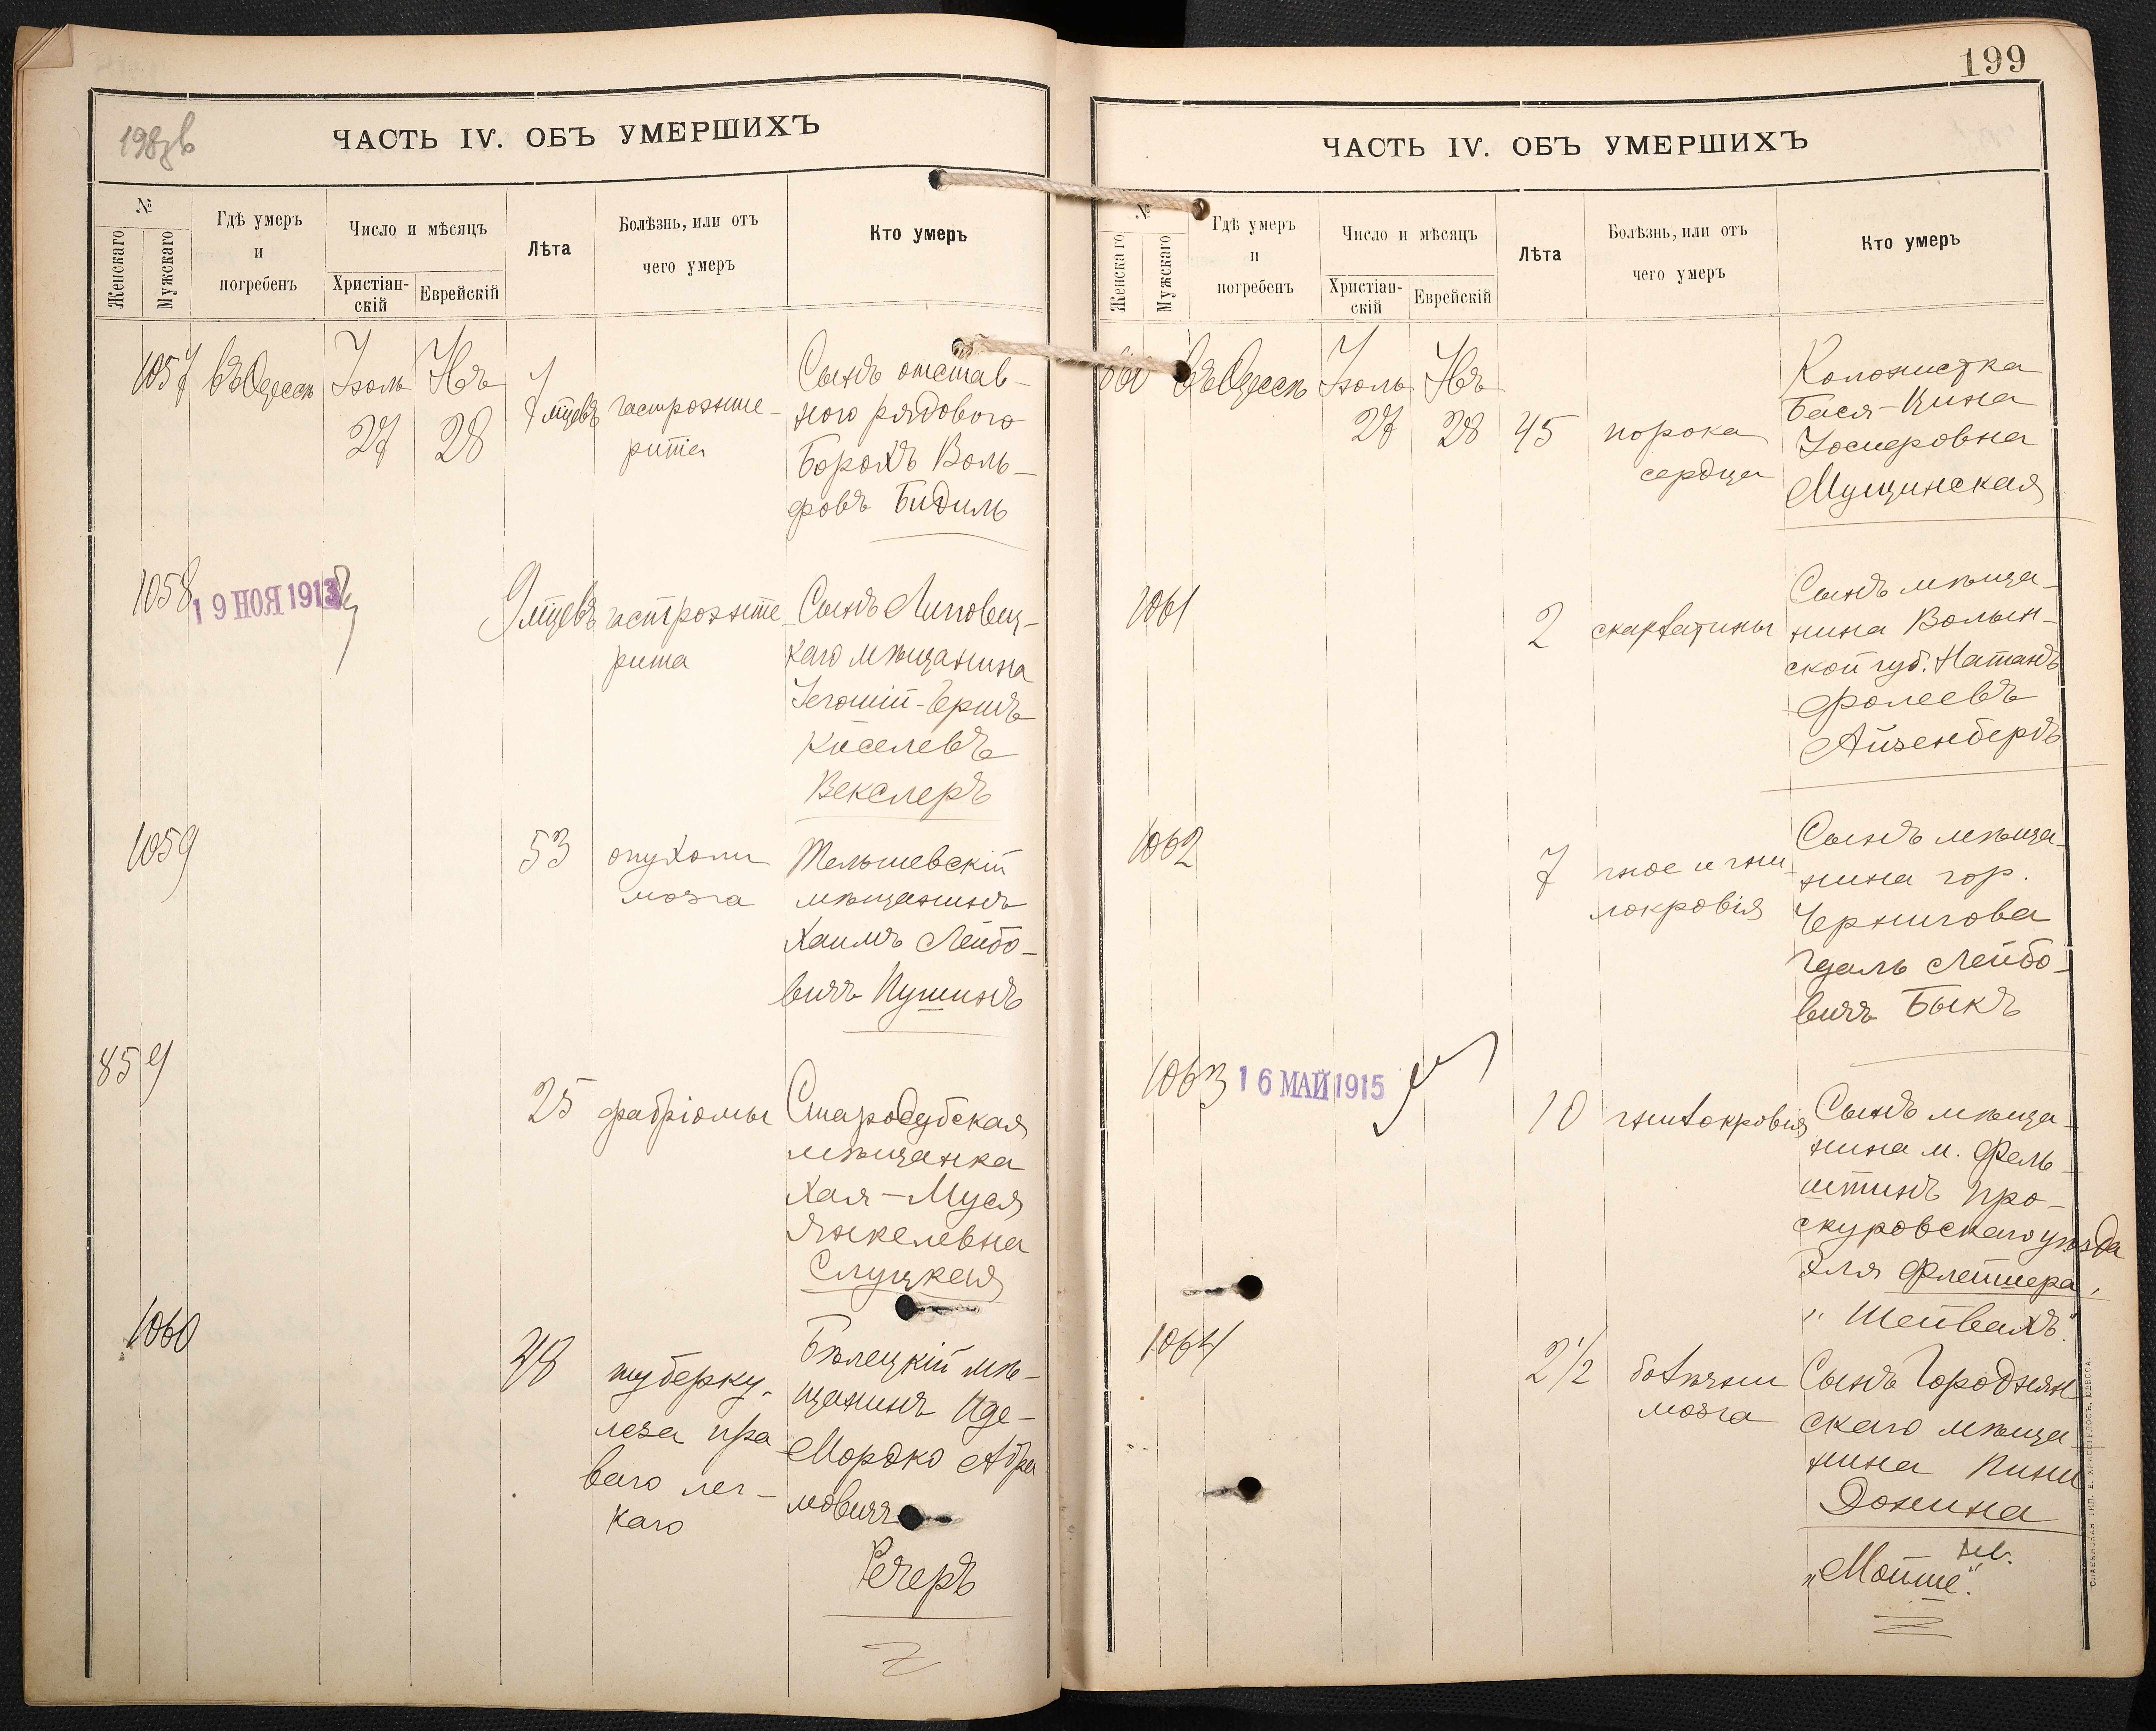 198 об
ЧАСТЬ IV. ОБЪ УМЕРШИХЪ
№
Женскаго
Мужскаго
Гдѣ умеръ
и
погребенъ
Число и мѣсяцъ
Христіан-
скій
Еврейскій
Лѣта
Болѣзнь, или отъ
чего умеръ
Кто умеръ
1057
въ Одессѣ
Іюль
27
28
7 мцевъ
гастроэнте-
рита
Сынъ отстав-
ного рядового
Борохъ Воль-
фовъ Бидиль
1058
19 НОЯ 1913
9 мцевъ
гастроэнте-
рита
Сынъ Липовец-
каго мѣщанина
Іегошій-Герш
Киселевъ
Векслеръ
1059
53
опухоли
мозга
Тельшевскій
мѣщанинъ
Хаимъ Лейбо-
вичъ Пушинъ
859
25
фабріомы
Стародубская
мѣщанка
Хая-Муся
Янкелевна
Слуцкая
1060
48
туберку-
леза пра
ваго лег-
каго
Бѣлецкій мѣ-
щанинъ Иде-
Мордко Абра
мовичъ
Речеръ
199
ЧАСТЬ IV. ОБЪ УМЕРШИХЪ
№
Женскаго
Мужскаго
Гдѣ умеръ
и
погребенъ
Число и мѣсяцъ
Христіан-
скій
Еврейскій
Лѣта
Болѣзнь, или отъ
чего умеръ
Кто умеръ
въ Одессѣ
Іюль
27
28
45
порока
сердца
Колонистка
Бася-Цина
Іосперовна
Мущинская
1061
2
скарлатины
Сынъ мѣща-
нина Волын-
ской губ. Натанъ
Фолеевъ
Айзенбергъ
1062
7
гное и гни
локровія
Сынъ мѣща-
нина гор.
Чернигова
Гдаль Лейбо-
вичъ Быкъ
1063
16 МАЙ 1915
10
гнилокровія
Сынъ мѣща-
нина м. Фель-
штинъ Про-
скуровскаго уѣзда
Эля Флейшера,
"Шейвахъ".
1064
2 1/2
болѣзни
мозга
Сынъ Городнян
скаго мѣща-
нина Пини
Донина
„Мойше".
СЛАВЯНСКАЯ ТИП. Е. ХРИСОГЕЛОСЪ, ОДЕССА.